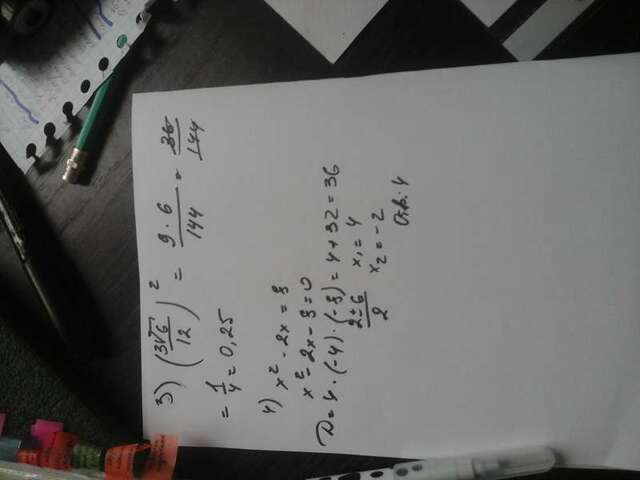 3) (3√6/12)² = 9·6/144 = 36/144
= 1/4 = 0,25
4) x² - 2x = 8
x² - 2x - 8 = 0
D = 4·(-4)·(-8) = 4 + 32 = 36
2±6/2 x₁ = 4
x₂ = -2
Отв: 4